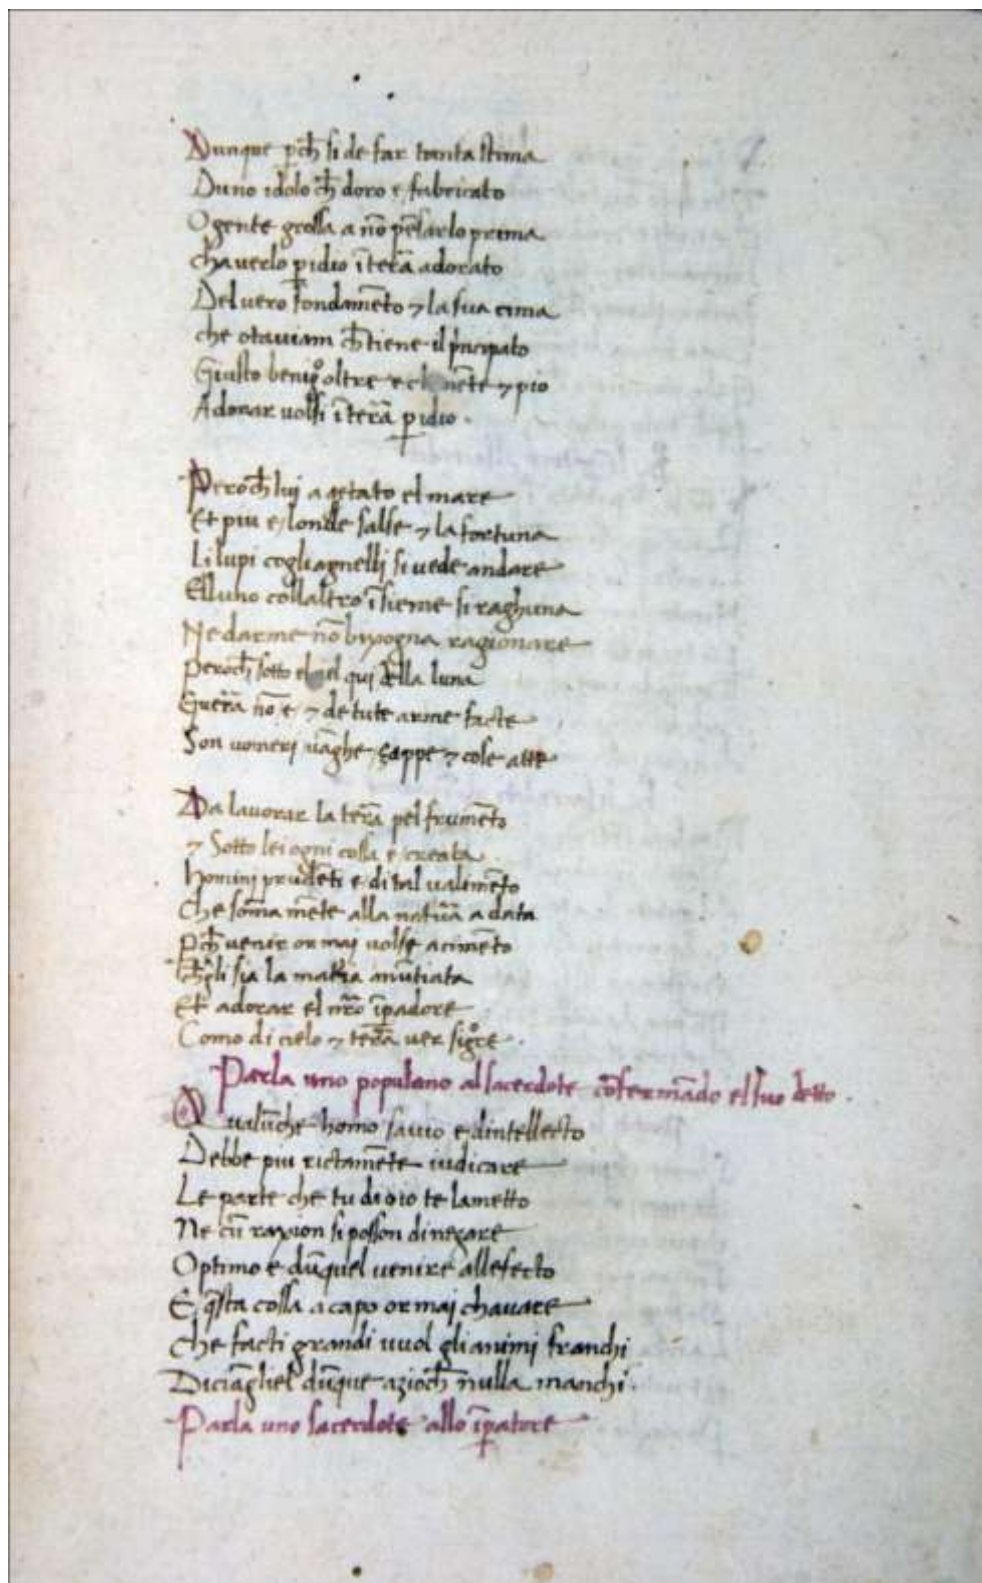 Dunque pch̄ si de far tanta stima
Duno idolo ch̄ doro e fabricato
O gente grossa a nō pēsarlo prima
chaverlo p̱ dio ī terā adorato
Del vero fondamēto ⁊ la sua cima
che otaviam ch̄ tiene il pncipato
Giusto benigo oltre e nēte ⁊ pio
Adorar volsi ī terā p̱ dio .
Peroch̄ lui a qetato el mare
Et piu e londe salse ⁊ la fortuna
Li lupi cogli agnelli si vede andare
El luno collaltro īsieme si raghuna
Ne darme nō byxogna ragionare
peroch̄ sotto el iel qui della luna
Guerā nō e ⁊ de tute arme facte
Son vomeri vāghe zappe ⁊ cose atte
Da lavorar la terā pel frumēto
⁊ Sotto lei ogni cossa e creata .
homini prudēti e di tal valimēto
Che soma mēte alla naturā a data
pch̄ venir ormai volse a cimēto
ch̄gli sia la matia anūtiata
Et adorar el nrō īpadore
Como di cielo ⁊ terā ver sigre .
Parla uno populano al sacerdote cōfermādo el suo detto .
Qualūche homo savio e dintellecto
Debbe piu rictamēte iudicare
Le parte che tu di oio te lametto
Ne cū raxion si posson dinegare
Optimo e dūquel venire allefecto
E qsta cossa a capo ormai chavare
che facti grandi vuol gli animi franchi
Diciāgliel dūque azioch̄ nulla manchi .
Parla uno sacerdote allo īpatore